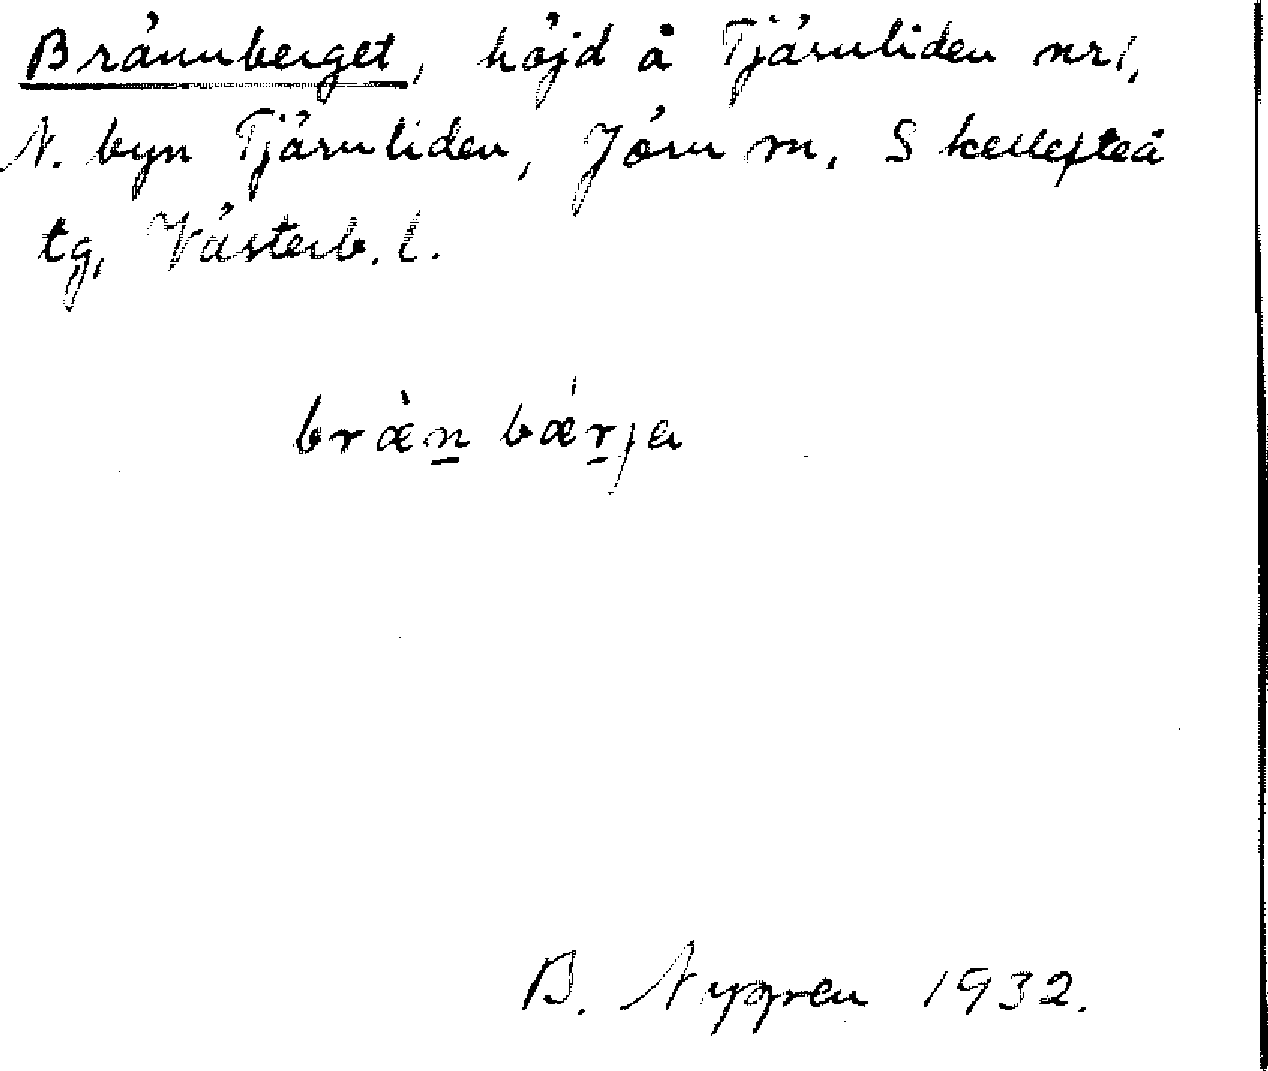 Brännberget, höjd å Tjärnliden nr 1,
N. byn Tjärnliden, Jörn sn, Skellefteå
tg, Västerb. l.
bræ̀n̠ bǽr̠ja
B. Nygren 1932.